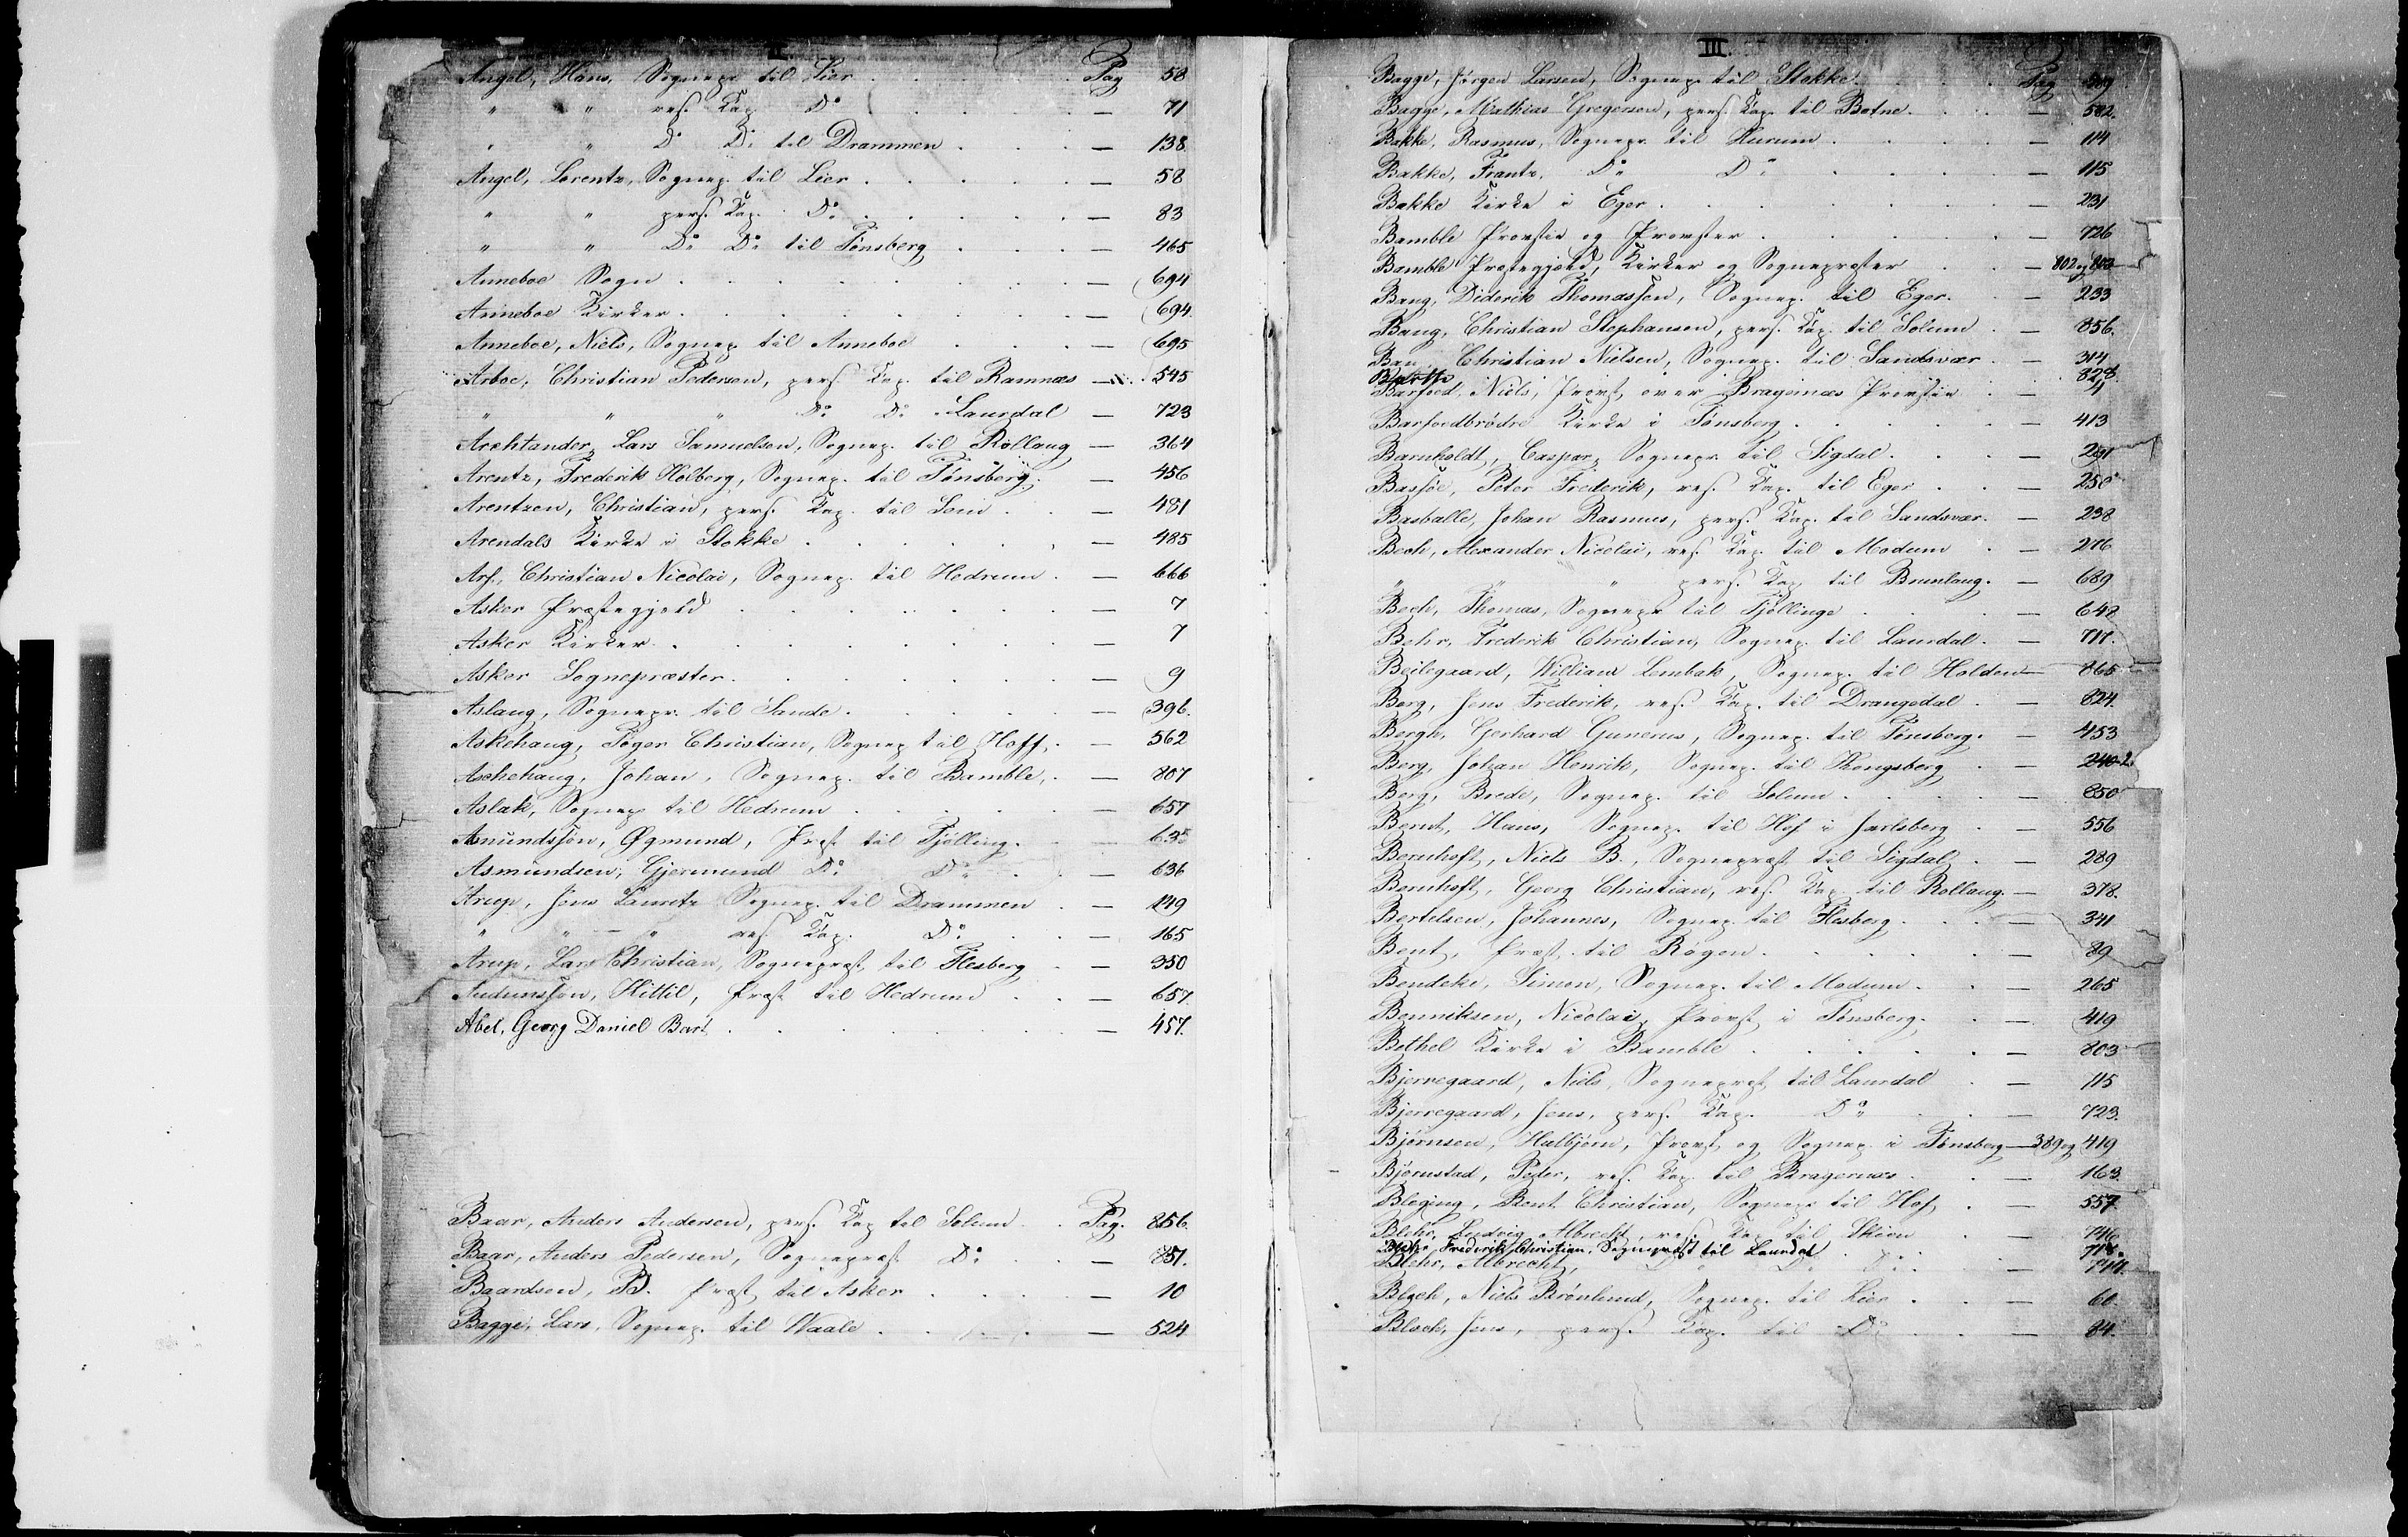 II.
Angel, Hans, Sognepr. til Lier . . . . . . Pag 58
" " res. Kap. Do . . . . . — 71
" " Do Do til Drammen . . . . — 138
Angel, Lorentz, Sognep. til Lier . . . . . . — 58
" " pers. Kap. Do . . . . . . — 83
" " Do Do til Tønsberg . . . . — 465
Anneboe Sogn . . . . . . . . . — 694
Anneboe Kirker . . . . . . . . . — 694.
Anneboe, Niels, Sognep. til Anneboe . . . . — 695
Arboe, Christian Pedersen, pers. Kap. til Ramnæs — 545
" " " Do Do Laurdal — 723
Archtander, Lars Samuelsen, Sognep. til Rollaug — 364
Arentz, Frederik Holberg, Sognep. til Tønsberg. — 456
Arentzen, Christian, pers. Kap. til Sem . . — 481
Arendals Kirke i Stokke . . . . . . — 485
Arf., Christian Nicolai, Sognep. til Hedrum . — 666
Asker Præstegjeld . . . . . . . . — 7
Asker Kirker . . . . . . . . . — 7
Asker Sognepræster . . . . . . . — 9
Aslaug, Sognepr. til Sande . . . . . . — 396.
Askehaug, Tøger Christian, Sognep. til Hoff, . — 562
Aschehaug, Johan, Sognep. til Bamble, . — 807
Aslak, Sognep. til Hedrum . . . . . — 657
Asmundssøn, Øgmund, Præst til Tjølling . — 635
Asmundsen, Gjermund Do Do . . — 636
Arup, Jens Lauritz Sognep. til Drammen . — 149
" " — " res Kap. Do . . — 165
Arup, Lars Christian, Sognepræst til Flesberg . — 350
Audunssøn, Kittil, Præst til Hedrum . . — 657.
Abel, Georg Daniel Bart. . . . . . . . . — 457.
Baar, Anders Andersen, pers. Kap til Solum . . Pag. 856.
Baar, Anders Pedersen, Sognepræst Do . . — 851.
Baardsen, B. Præst til Asker . . . . — 10
Bagge, Lars, Sognep. til Waale . . . . . — 524
III.
Bagge, Jørgen Larsen, Sognep. til Stokke . . . . Pag 489
Bagge, Mathias Gregersen, pers. Kap. til Botne. . . — 502.
Bakke, Rasmus, Sognepr. til Hurum . . . . . — 114
Bakke, Frantz, Do Do . . . . — 115
Bakke Kirke i Eger . . . . . . . . — 231
Bamble Provstie og Provster . . . . . . — 726
Bamble Præstegjeld, Kirker og Sognepræster . . — 802 og 803
Bang, Diderik Thomassen, Sognep. til Eger. . — 233
Bang, Christian Stephansen, pers. Kap. til Solum . — 856.
Bang Christian Nielsen, Sognep. til Sandsvær . — 314
828.
Barfoed, Niels, Provst over Bragernæs Provstie . — 4
Barfoedbrødre Kirke i Tønsberg . . . . . — 413
Barnholdt, Caspar, Sognepr. til Sigdal . . . — 291
Bassøe, Peter Frederik, res. Kap. til Eger . . — 250
Basballe, Johan Rasmus, pers. Kap. til Sandsvær. — 238
Bech, Alexander Nicolai, res. Kap. til Modum . — 276
" " " pers. Kap. til Brunlaug. — 689
Bech, Thomas, Sognepr. til Tjøllinge . . . . — 648
Behr, Frederik Christian, Sognep. til Laurdal. — 717.
Beilegaard, William Lembak, Sognep. til Holden — 865
Berg, Jens Frederik, res. Kap. til Drangedal . — 824.
Bergh, Gerhard Gunerus, Sognep. til Tønsberg. — 453
Berg, Johan Henrik, Sognep. til Kongsberg . — 240-2.
Berg, Brede, Sognep. til Solum . . . . . — 850
Bernt, Hans, Sognep. til Hof i Jarlsberg . — 556
Bernhoft, Niels B., Sognepræst til Sigdal . . — 289
Bernhoft, Georg Christian, res. Kap. til Rollaug. — 378.
Bertelsen, Johannes, Sognep. til Flesberg . . . — 341
Bent, Præst til Røgen . . . . . . — 89
Bendeke, Simen, Sognep. til Modum . . . — 265
Benniksen, Nicolai, Provst i Tønsberg. . . — 419
Bethel Kirke i Bamble . . . . . . — 803
Bjerregaard, Niels, Sognepræst til Laurdal . — 715
Bjerregaard, Jens, pers. Kap. Do . . — 723.
Bjørnsen, Halbjørn, Provst og Sognep. i Tønsberg — 389 og 419
Bjørnstad, Peder, res. Kap. til Bragernæs . . . — 163.
Bleging, Bent Christian, Sognepr. til Hof . . — 557.
Blehr, Ludvig Albrecht, res. Kap. til Skien . . — 746
Frederik Christian, Sognepræst til Laurdal 718.
Blehr, Albrecht, Do Do . . — 717.
Bloch, Niels Brønlund, Sognep. til Lier . . — 60.
Bloch, Jens, pers. Kap. til Do . . . — 84.